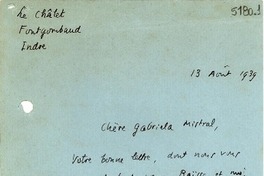 Le Châlet
Fontgombaud
Indre
5180.1
13 Août 1939
Chère Gabriela Mistral,
Votre bonne lettre, dont nous vous
Raïssa et moi